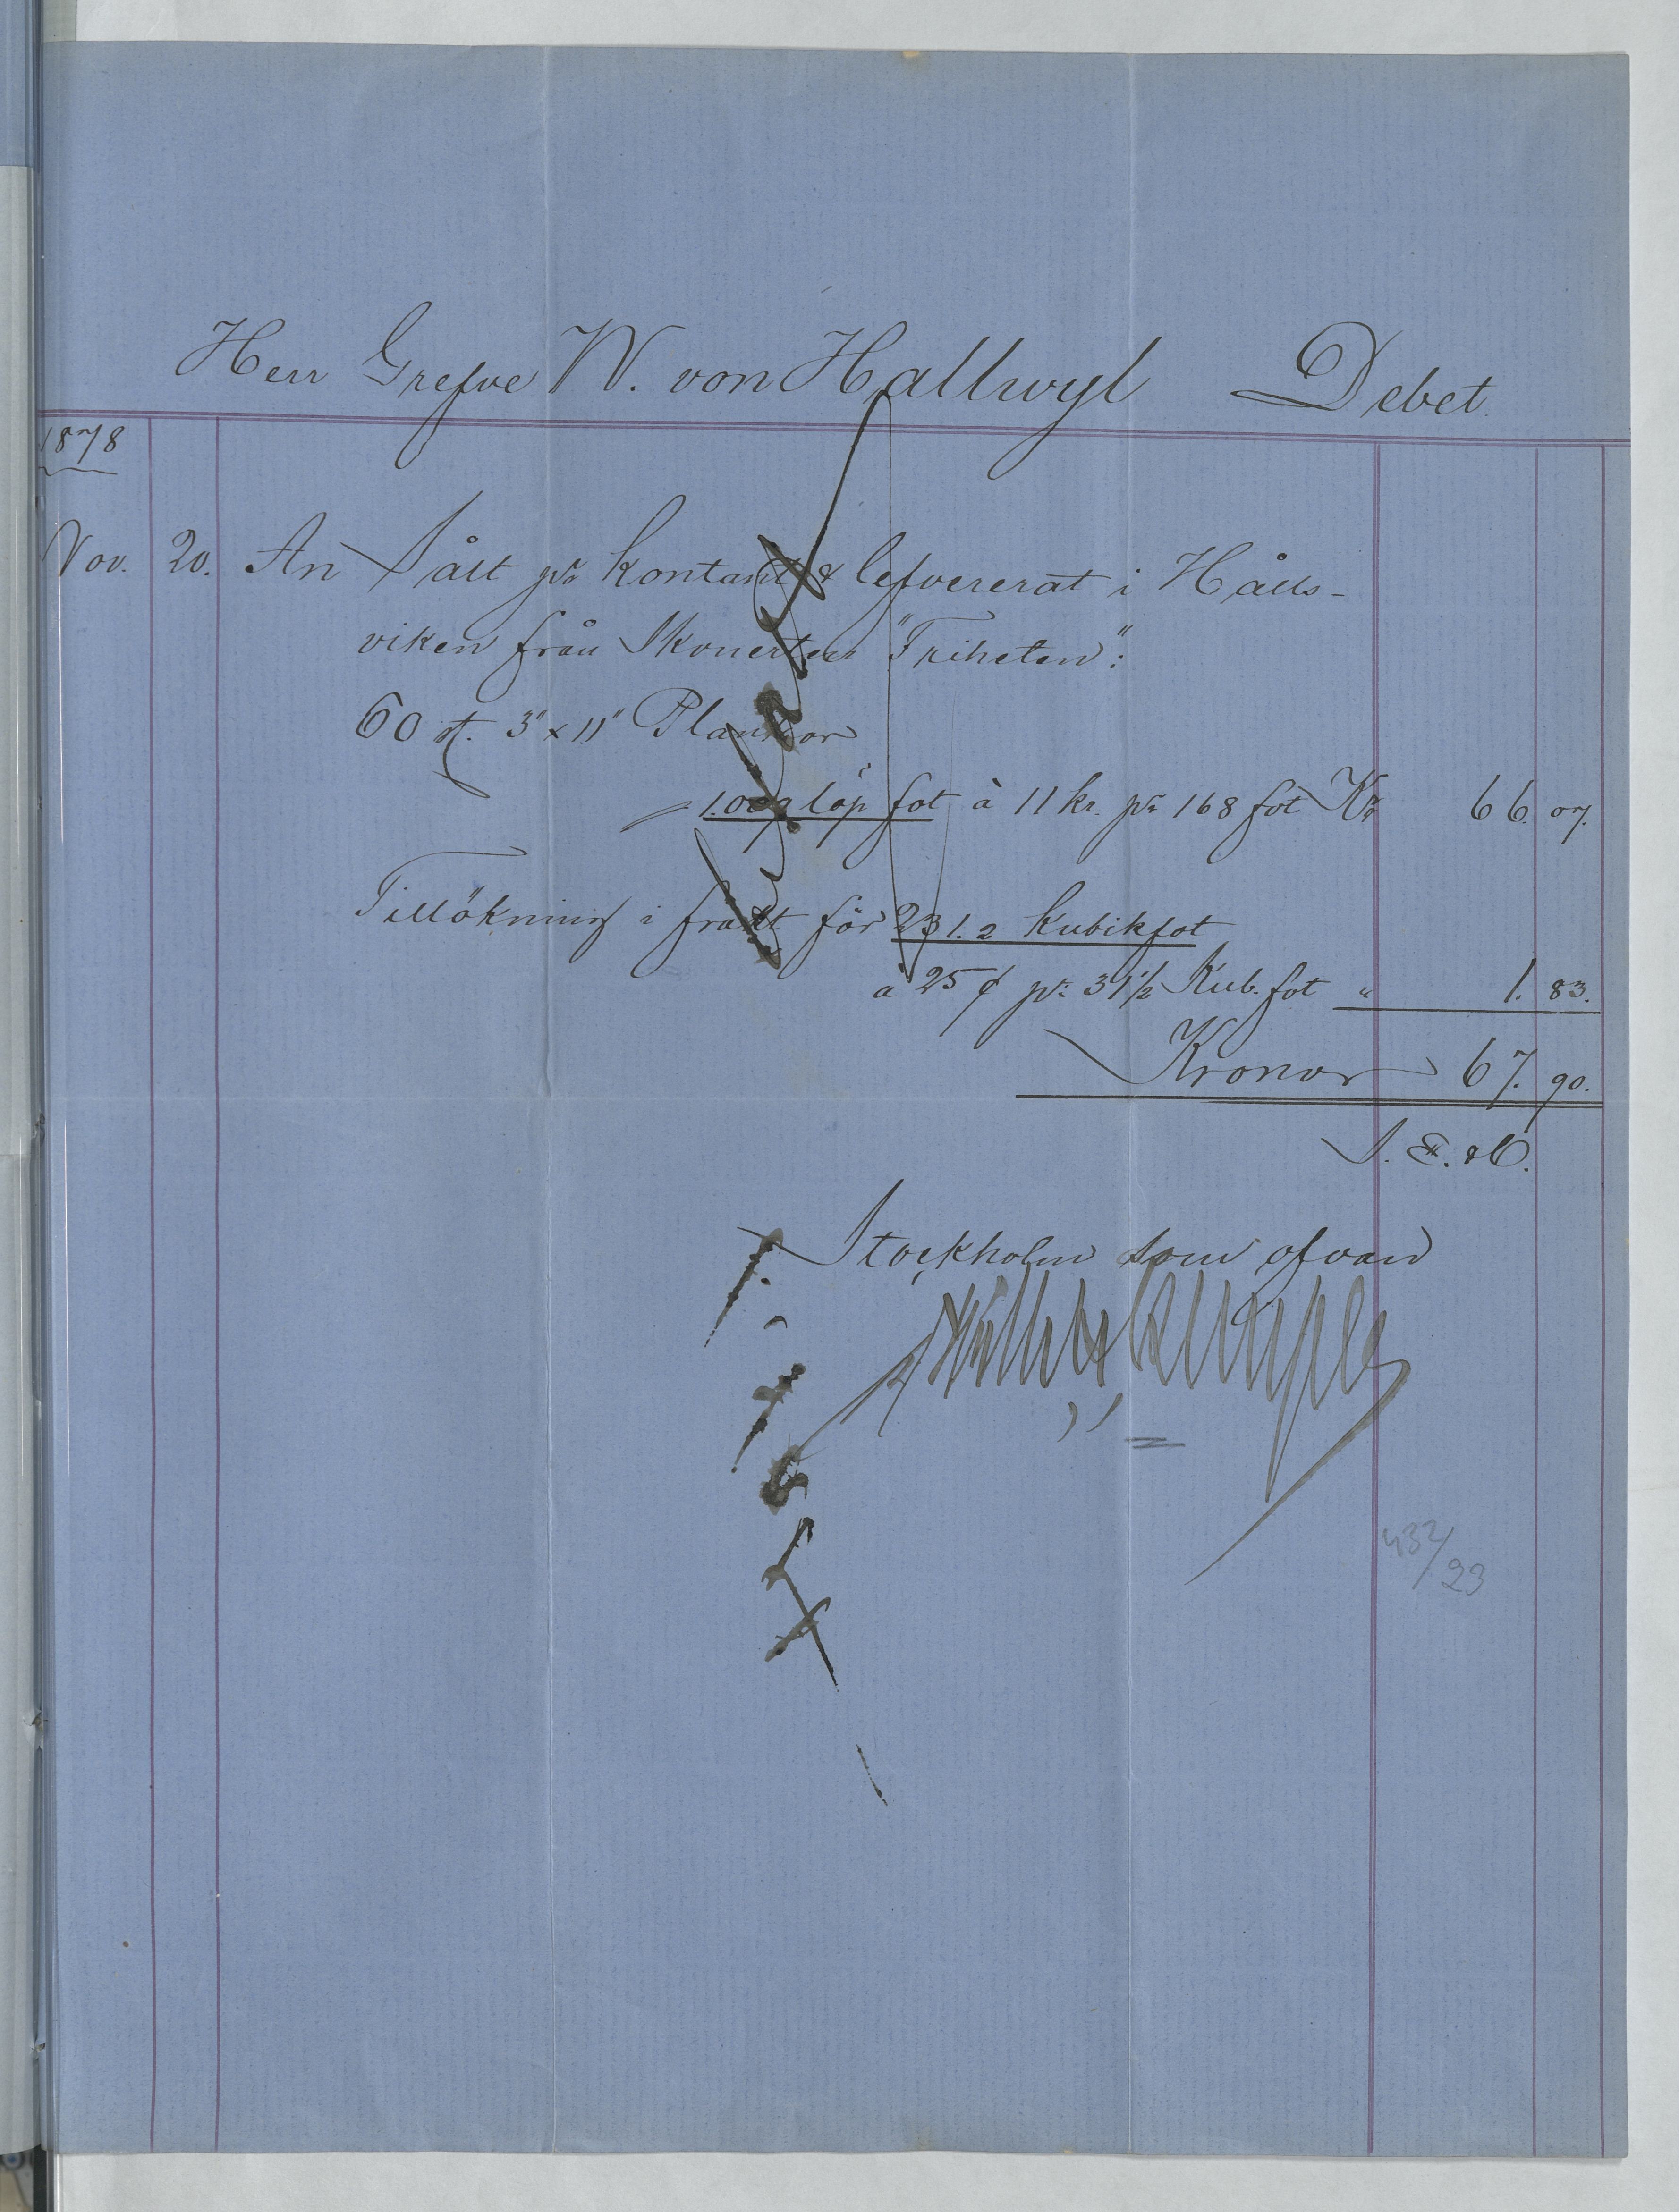 Herr Grefve W. von Hallwyl Debet.
1878
Nov. 20. An Sålt pr kontant & lefvererat i Hålls-
viken från Skonerten "Friheten":
60 st. 3" x 11" Plankor
1.009 löp. fot à 11 kr. pr 168 fot Kr 66. 07.
Tillökning i frakt för 231.2 Kubikfot
à 25 ¢ pr. 31½ Kub. fot " 1. 83.
Kronor 67. 90.
S. E. & O.
Stockholm som ofvan
432/23